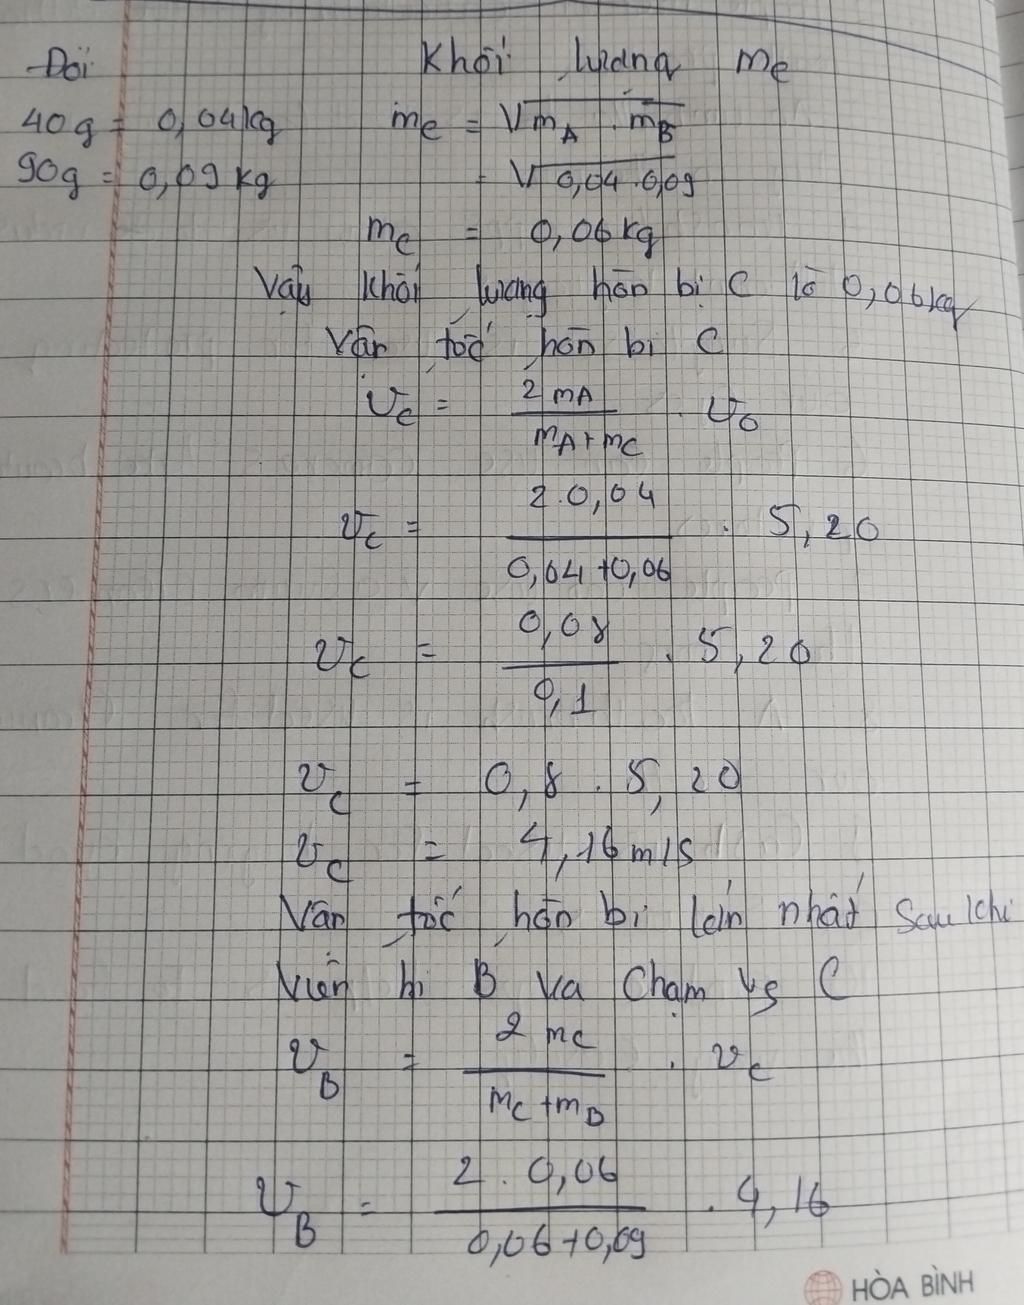 Đổi Khối lượng mc
40g = 0,04kg mc = √mA . mB
90g = 0,09kg = √0,04 . 0,09
mc = 0,06kg
Vậy khối lượng hòn bi C là 0,06kg
Vận tốc hòn bi C
vc = 2mA / mA+mc . v0
vc = 2.0,04 / 0,04+0,06 . 5,20
vc = 0,08 / 0,1 . 5,20
vc = 0,8 . 5,20
vc = 4,16m/s
Vận tốc hòn bi lớn nhất sau khi
viên bi B va chạm vs C
vB = 2mc / mc+mB . vc
vB = 2.0,06 / 0,06+0,09 . 4,16
HÒA BÌNH